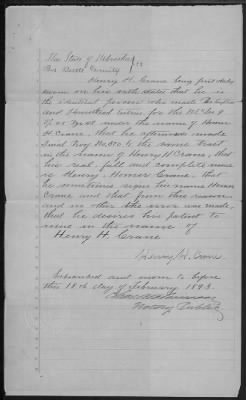 The State of Nebraska } ss
Box Butte County
Henry H. Crane being first duly
sworn on his oath states that he is
the identical person who made
and Homestead entries for the
under the name of Homer
H. Crane, that he afterward made
final Proof No. 810 to the same tract
in the name of Henry H Crane, that
his real, full and complete name
is Henry Homer Crane, that
he sometimes signs his name Homer
Crane and that from this reason
and in other the error was made,
that he desires his patent to
in the name of
Henry H. Crane
Henry H. Crane
Subscribed and sworn to before
this 18th day of February 1893.
Notary Public